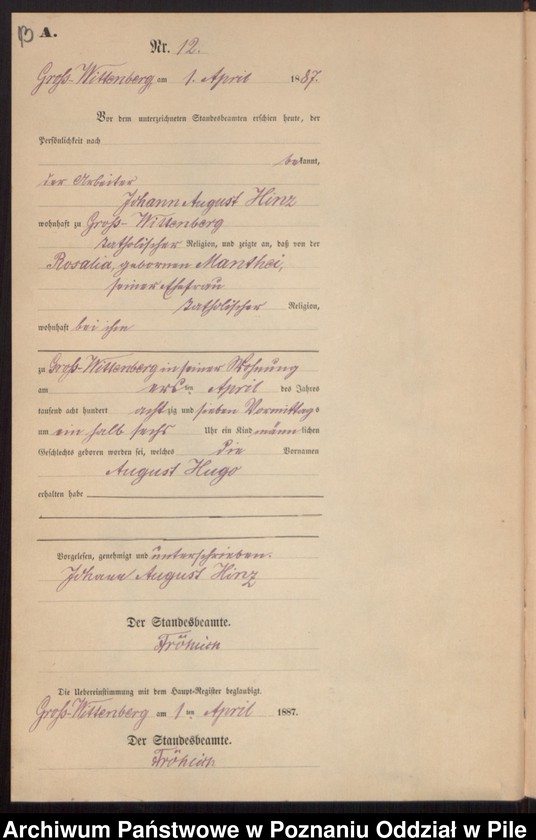 B A.
Nr. 12.
Groß-Wittenberg, am 1. April 1887.
Vor dem unterzeichneten Standesbeamten erschien heute, der
Persönlichkeit nach
bekannt,
der Arbeiter
Johann August Hinz
wohnhaft zu Groß-Wittenberg
katholischer Religion, und zeigte an, daß von der
Rosalia, gebornen Manthei,
seiner Ehefrau
katholischer Religion,
wohnhaft bei ihm
zu Groß-Wittenberg in seiner Wohnung
am ersten April des Jahres
tausend acht hundert achtzig und sieben Vormittags
um ein halb sechs Uhr ein Kind männlichen
Geschlechts geboren worden sei, welches die Vornamen
August Hugo
erhalten habe
Vorgelesen, genehmigt und unterschrieben.
Johann August Hinz
Der Standesbeamte.
Fröhlich
Die Uebereinstimmung mit dem Haupt-Register beglaubigt.
Groß-Wittenberg am 1ten April 1887.
Der Standesbeamte.
Fröhlich
Archiwum Państwowe w Poznaniu Oddział w Pile